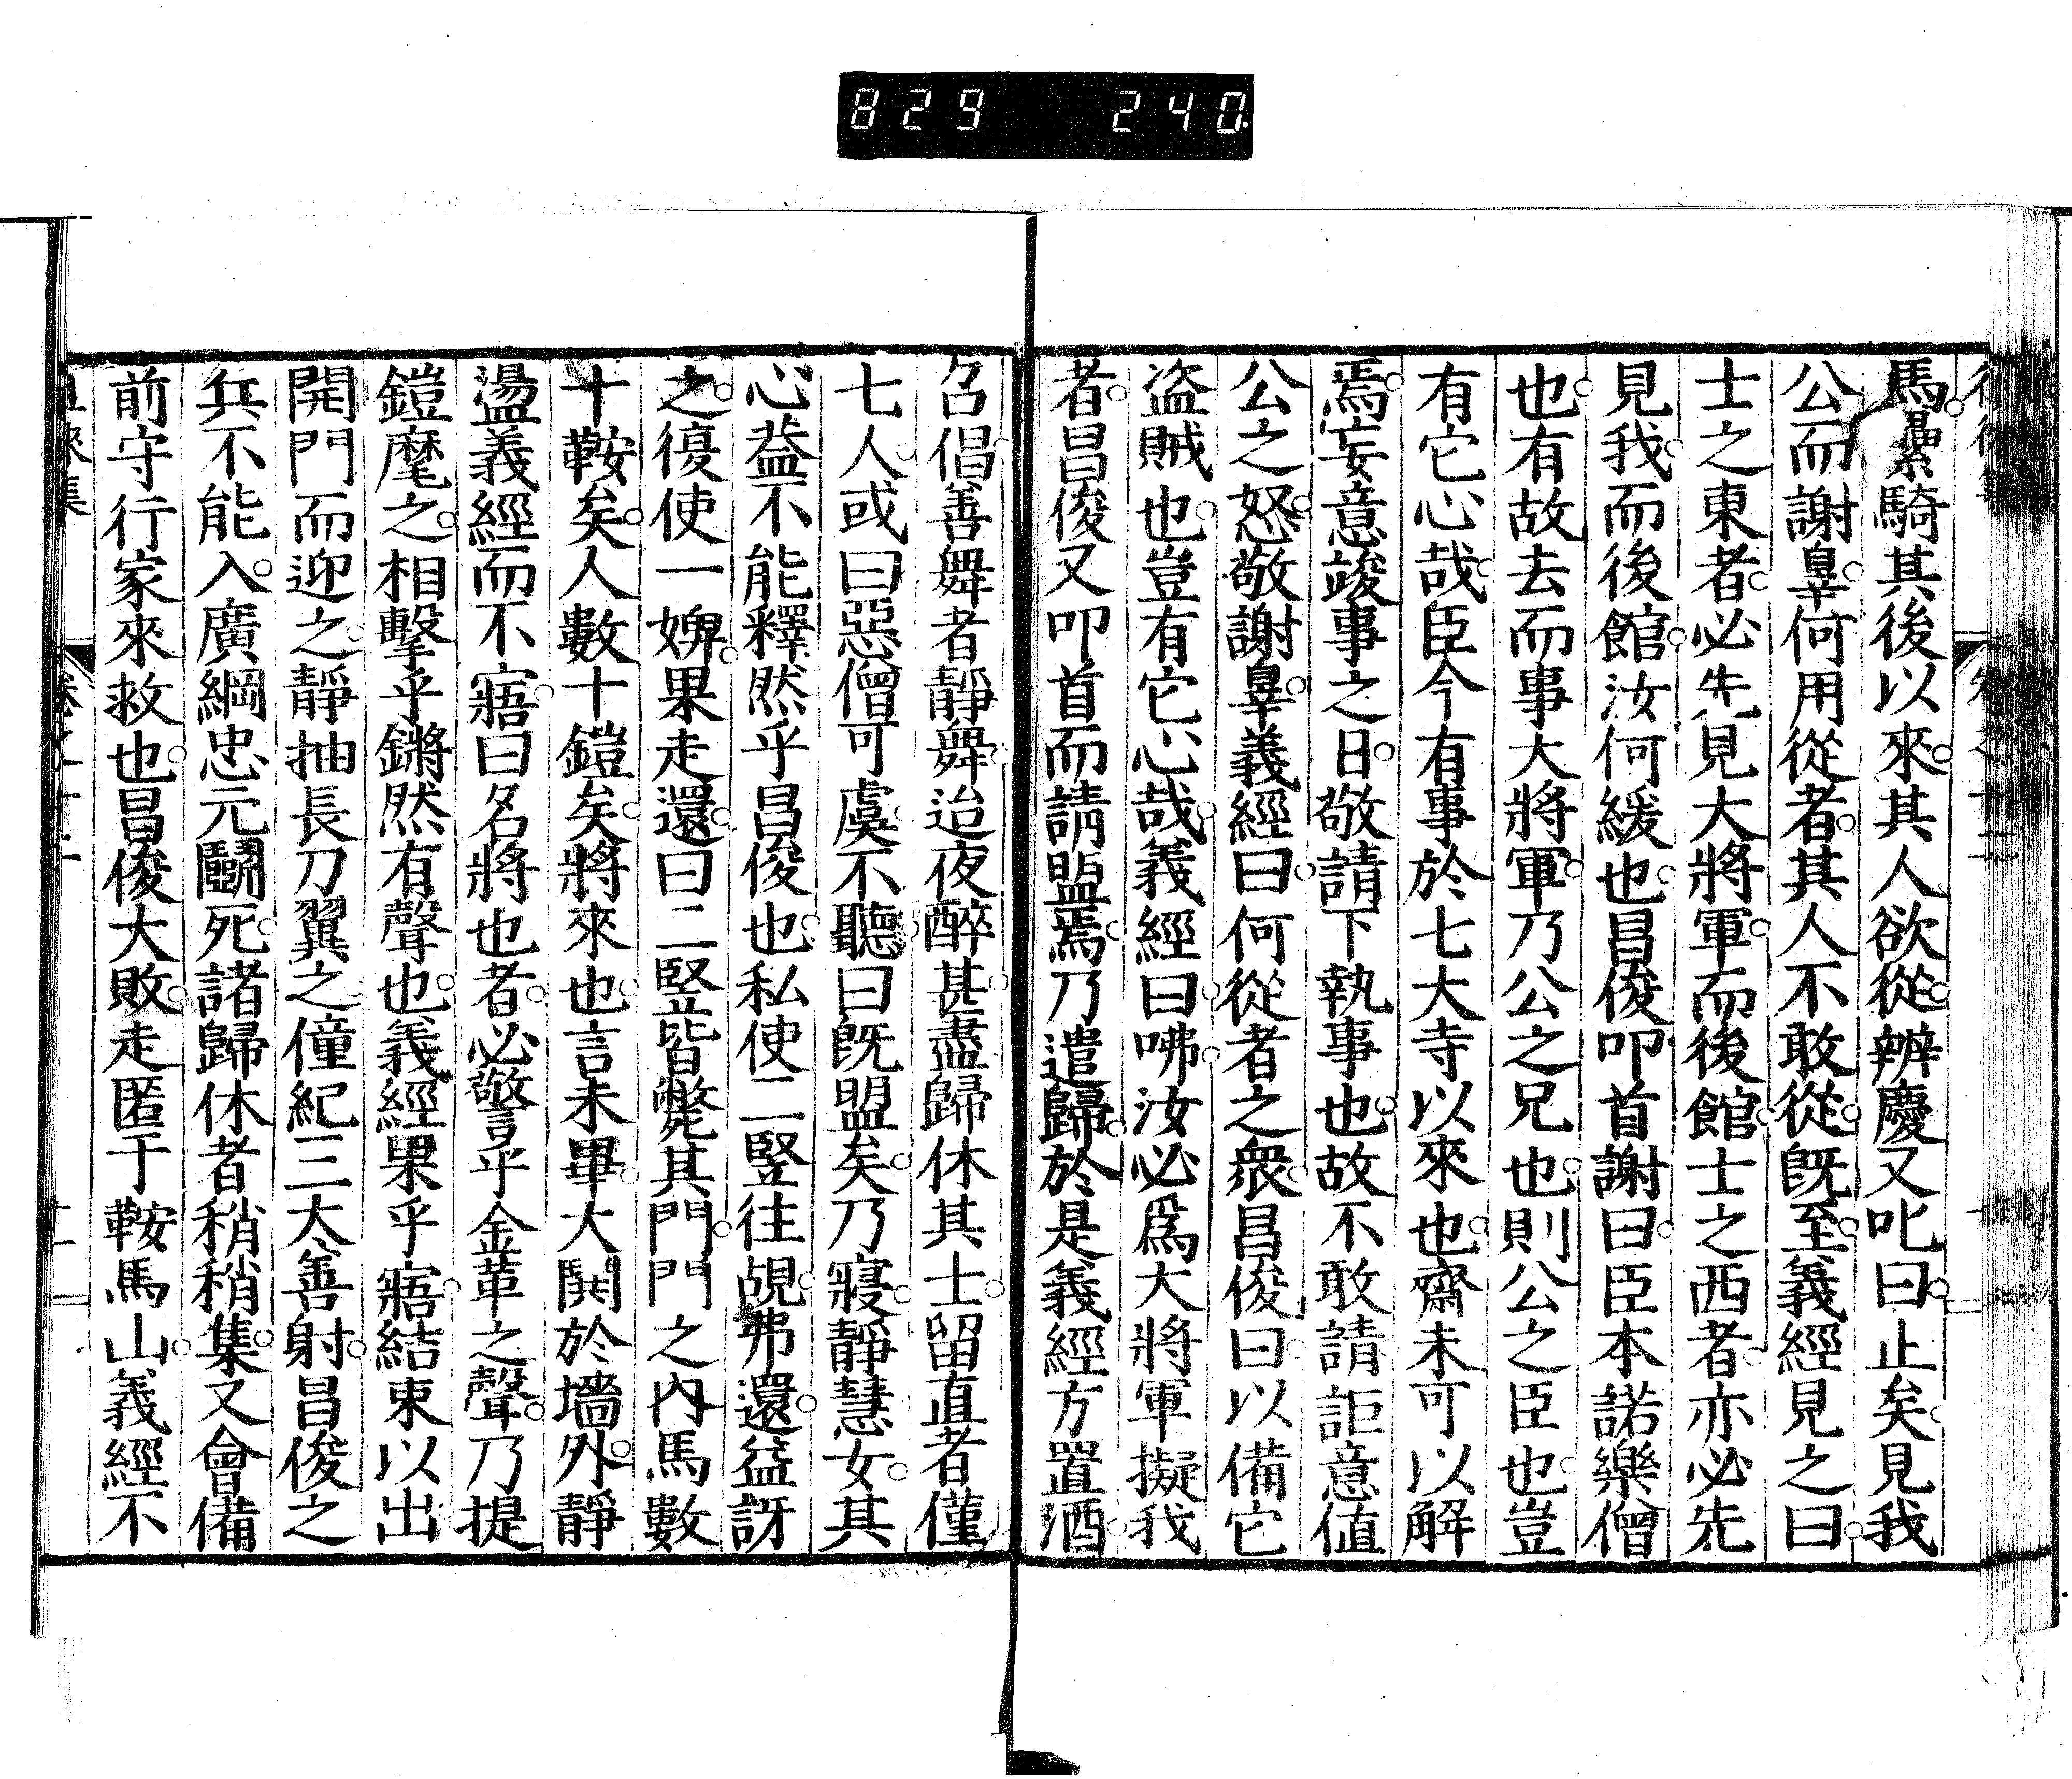 829 240.
馬纍騎其後以來其人欲從辨慶又叱曰止矣見我
公而謝辠何用從者其人不敢從既至義經見之曰
士之東者必先見大將軍而後館士之西者亦必先
見我而後館汝何緩也昌俊叩首謝曰臣本諾樂僧
也有故去而事大將軍乃公之兄也則公之臣也豈
有它心哉臣今有事於七大寺以來也齋未可以解
焉妄意竣事之日敬請下執事也故不敢請詎意値
公之怒敬謝辠義經曰何從者之衆昌俊曰以備它
盜賊也豈有它心哉義經曰咈汝必爲大將軍擬我
者昌俊又叩首而請盟焉乃遣歸於是義經方置酒
召倡善舞者靜舞迨夜醉甚盡歸休其士留直者僅
七人或曰惡僧可虞不聽曰既盟矣乃寢靜慧女其
心益不能釋然乎昌俊也私使二豎往覘弗還益訝
之復使一婢果走還曰二豎皆斃其門門之內馬數
十鞍矣人數十鎧矣將來也言未畢大鬨於墻外靜
盪義經而不寤曰名將也者必警乎金革之聲乃提
鎧麾之相擊乎鏘然有聲也義經果乎寤結束以出
開門而迎之靜抽長刀翼之僮紀三大善射昌俊之
兵不能入廣綱忠元鬭死諸歸休者稍稍集又會備
前守行家來救也昌俊大敗走匿于鞍馬山義經不